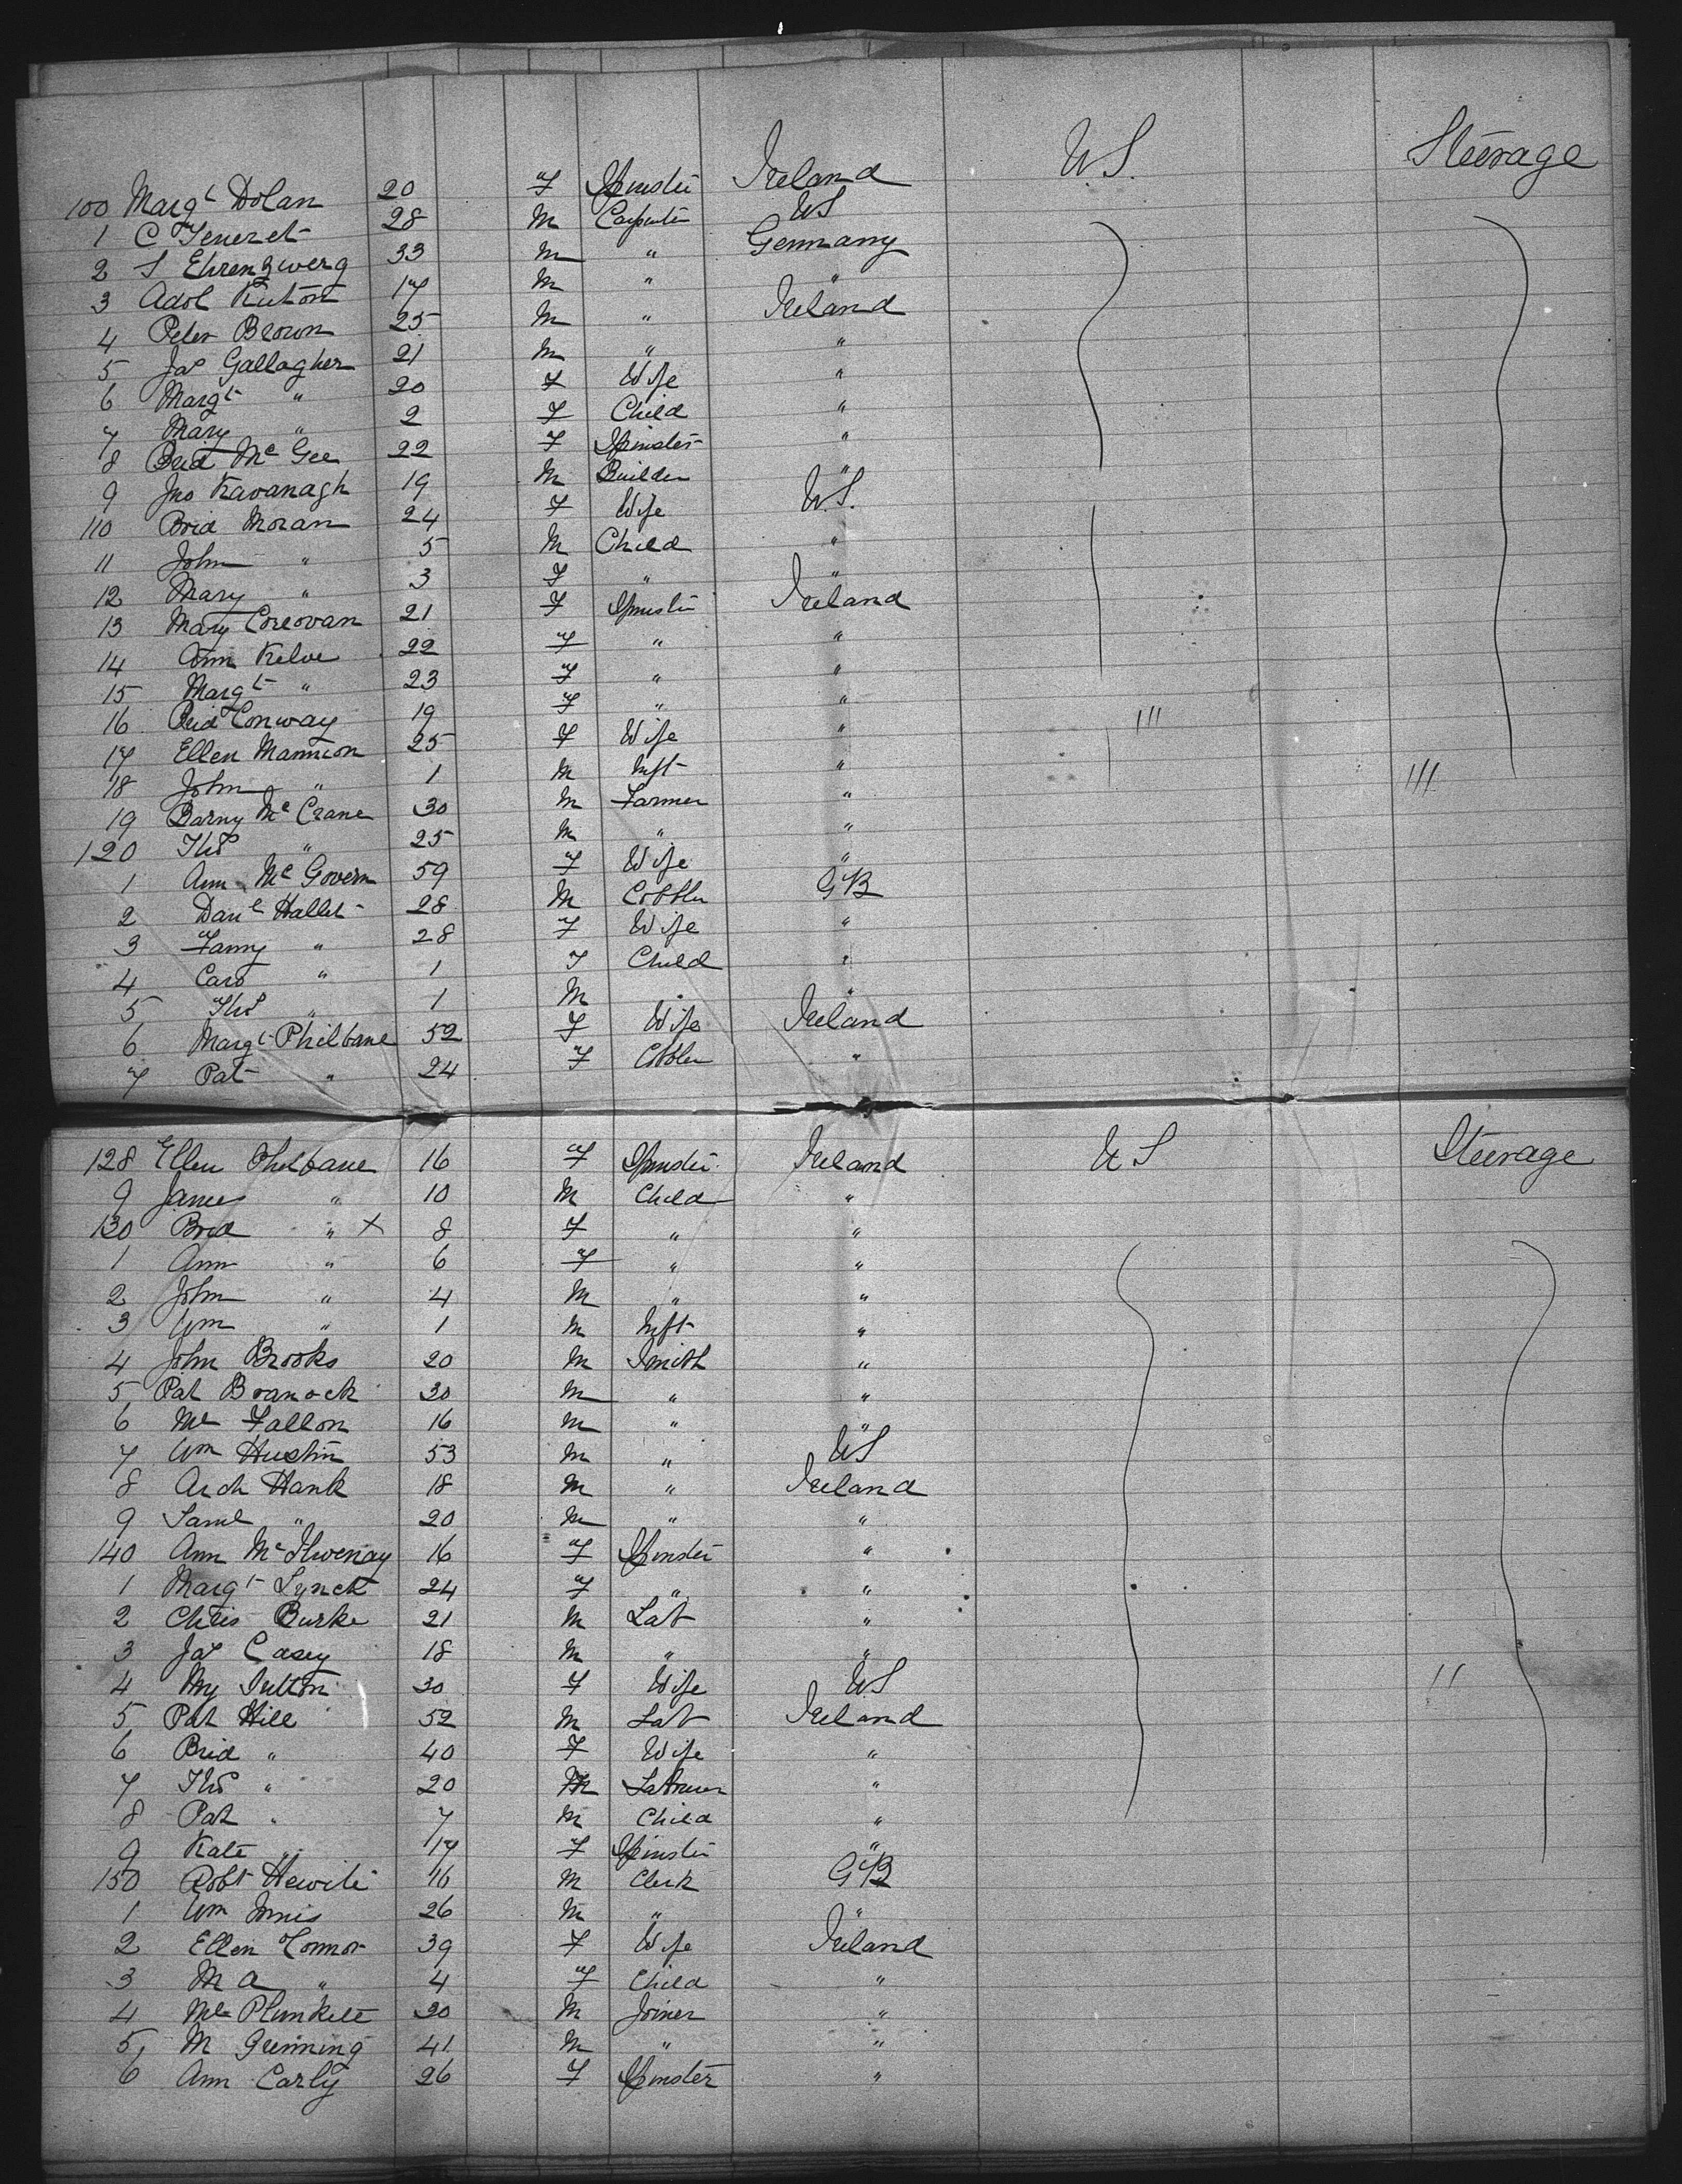 100 Margt Dolan 20 F Spinster Ireland U.S. Steerage
1 C Feneret 28 M Carpenter US
2 S Ehrenzwerg 33 M " Germany
3 Adol 17 M " "
4 Peter Brown 25 M " Ireland
5 Jas Gallagher 21 M " "
6 Margt " 20 F Wife "
7 Mary " 2 F Child "
8 Brid Mc Gee 22 F Spinster "
9 Jno Kavanagh 19 M Builder "
110 Brid Moran 24 F Wife U.S.
11 John " 5 M Child "
12 Mary " 3 F " "
13 Mary 21 F Spinster Ireland
14 Ann Kelve 22 F " "
15 Margt " 23 F " "
16 Brid Conway 19 F " "
17 Ellen Mannion 25 F Wife "
18 John " 1 M Inft "
19 Barny Mc Crane 30 M Farmer "
120 Thos " 25 M " "
1 Ann Mc Govern 59 F Wife "
2 Danl Hallet 28 M Cobbler GB
3 Fanny " 28 F Wife "
4 Caro " 1 F Child "
5 Thos " 1 M " "
6 Margt Philbane 52 F Wife Ireland
7 Pat " 24 F Cobbler "
128 Ellen Philbane 16 F Spinster Ireland U S Steerage
9 James " 10 M Child "
130 Brid " x 8 F " "
1 Ann " 6 F " "
2 John " 4 M " "
3 Wm " 1 M Inft "
4 John Brooks 20 M Smith "
5 Pat Branock 30 M " "
6 Ml Fallon 16 M " "
7 Wm Hustin 53 M " US
8 Arch Hank 18 M " Ireland
9 Saml " 20 M " "
140 Ann Mc Ilwenay 16 F Spinster "
1 Margt Lynch 24 F " "
2 Chris Burke 21 M Lab "
3 Jas Casey 18 M " "
4 My Sutton 30 F Wife US
5 Pat Hill 52 M Lab Ireland
6 Brid " 40 F Wife "
7 Thos " 20 M Labourer "
8 Pat " 7 M Child "
9 Kate " 17 F Spinster "
150 Robt Hewitt 16 M Clerk GB
1 Wm Innis 26 M " "
2 Ellen Connor 39 F Wife Ireland
3 M A " 4 F Child "
4 Ml Plunkett 30 M Joiner "
5 M Grenning 41 M " "
6 Ann Carly 26 F Spinster "